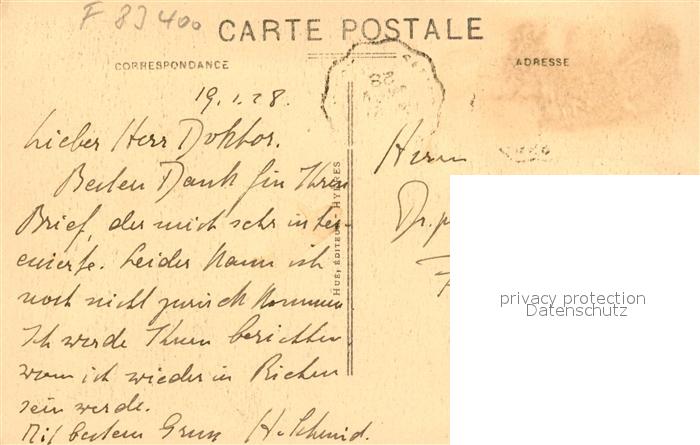 F 83400
CARTE POSTALE
CORRESPONDANCE
ADRESSE
19.1.28.
Lieber Herr Doktor.
Besten Dank für Ihren
Brief, der mich sehr inter-
essierte. Leider kann ich
noch nicht zurück kommen
Ich werde Ihnen berichten,
wann ich wieder in Riehen
sein werde.
Mit bestem Gruss H. Schmid.
HUE, ÉDITEUR, HYÈRES
Herrn
Dr.
privacy protection
Datenschutz